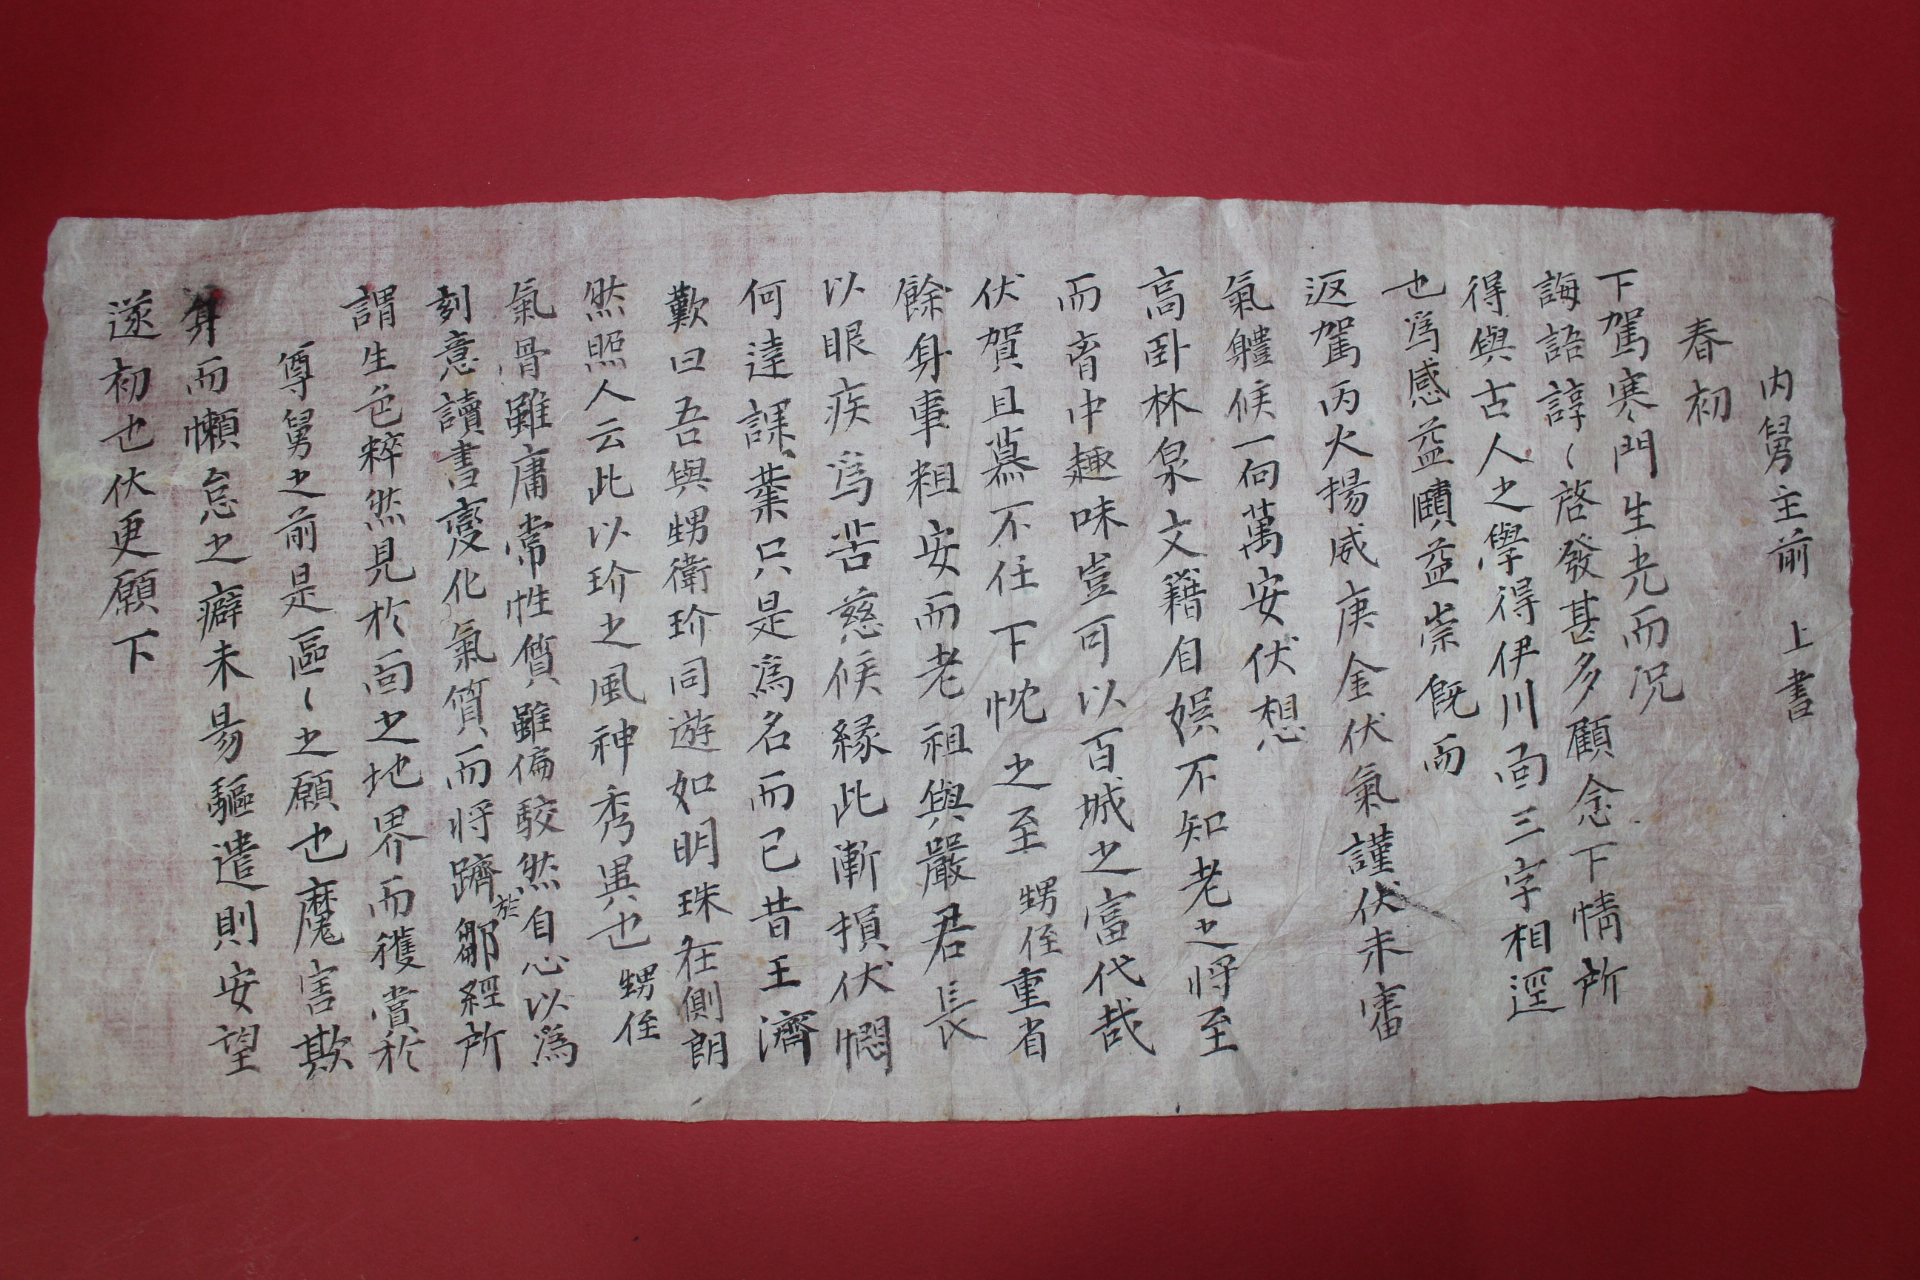 內舅主前 上書
春初
下駕寒門生光而况
誨語諄〻啓發甚多顧念下情所
得與古人之學得伊川面三字相逕
也爲感益賾益崇旣而
返駕丙火揚威庚金伏氣謹伏未審
氣軆候一向萬安伏想
高卧林泉文籍自娛不知老之將至
而斎中趣味豈可以百城之富代哉
伏賀且慕不任下忱之至 甥侄重省
餘身事粗安而老祖與嚴君長
以眼疾爲苦慈候緣此漸損伏憫
何達課業只是爲名而已昔王濟
歎曰吾與甥衛玠同遊如明珠在側朗
然照人云此以玠之風神秀異也甥侄
氣骨雖庸常性質雖偏駁然自心以爲
刻意讀書變化氣質而將躋於鄒經所
謂生色粹然見於面之地界而獲賞於
尊舅之前是區〻之願也魔害欺
身而懶怠之癖未易驅遣則安望
遂初也伏更願下